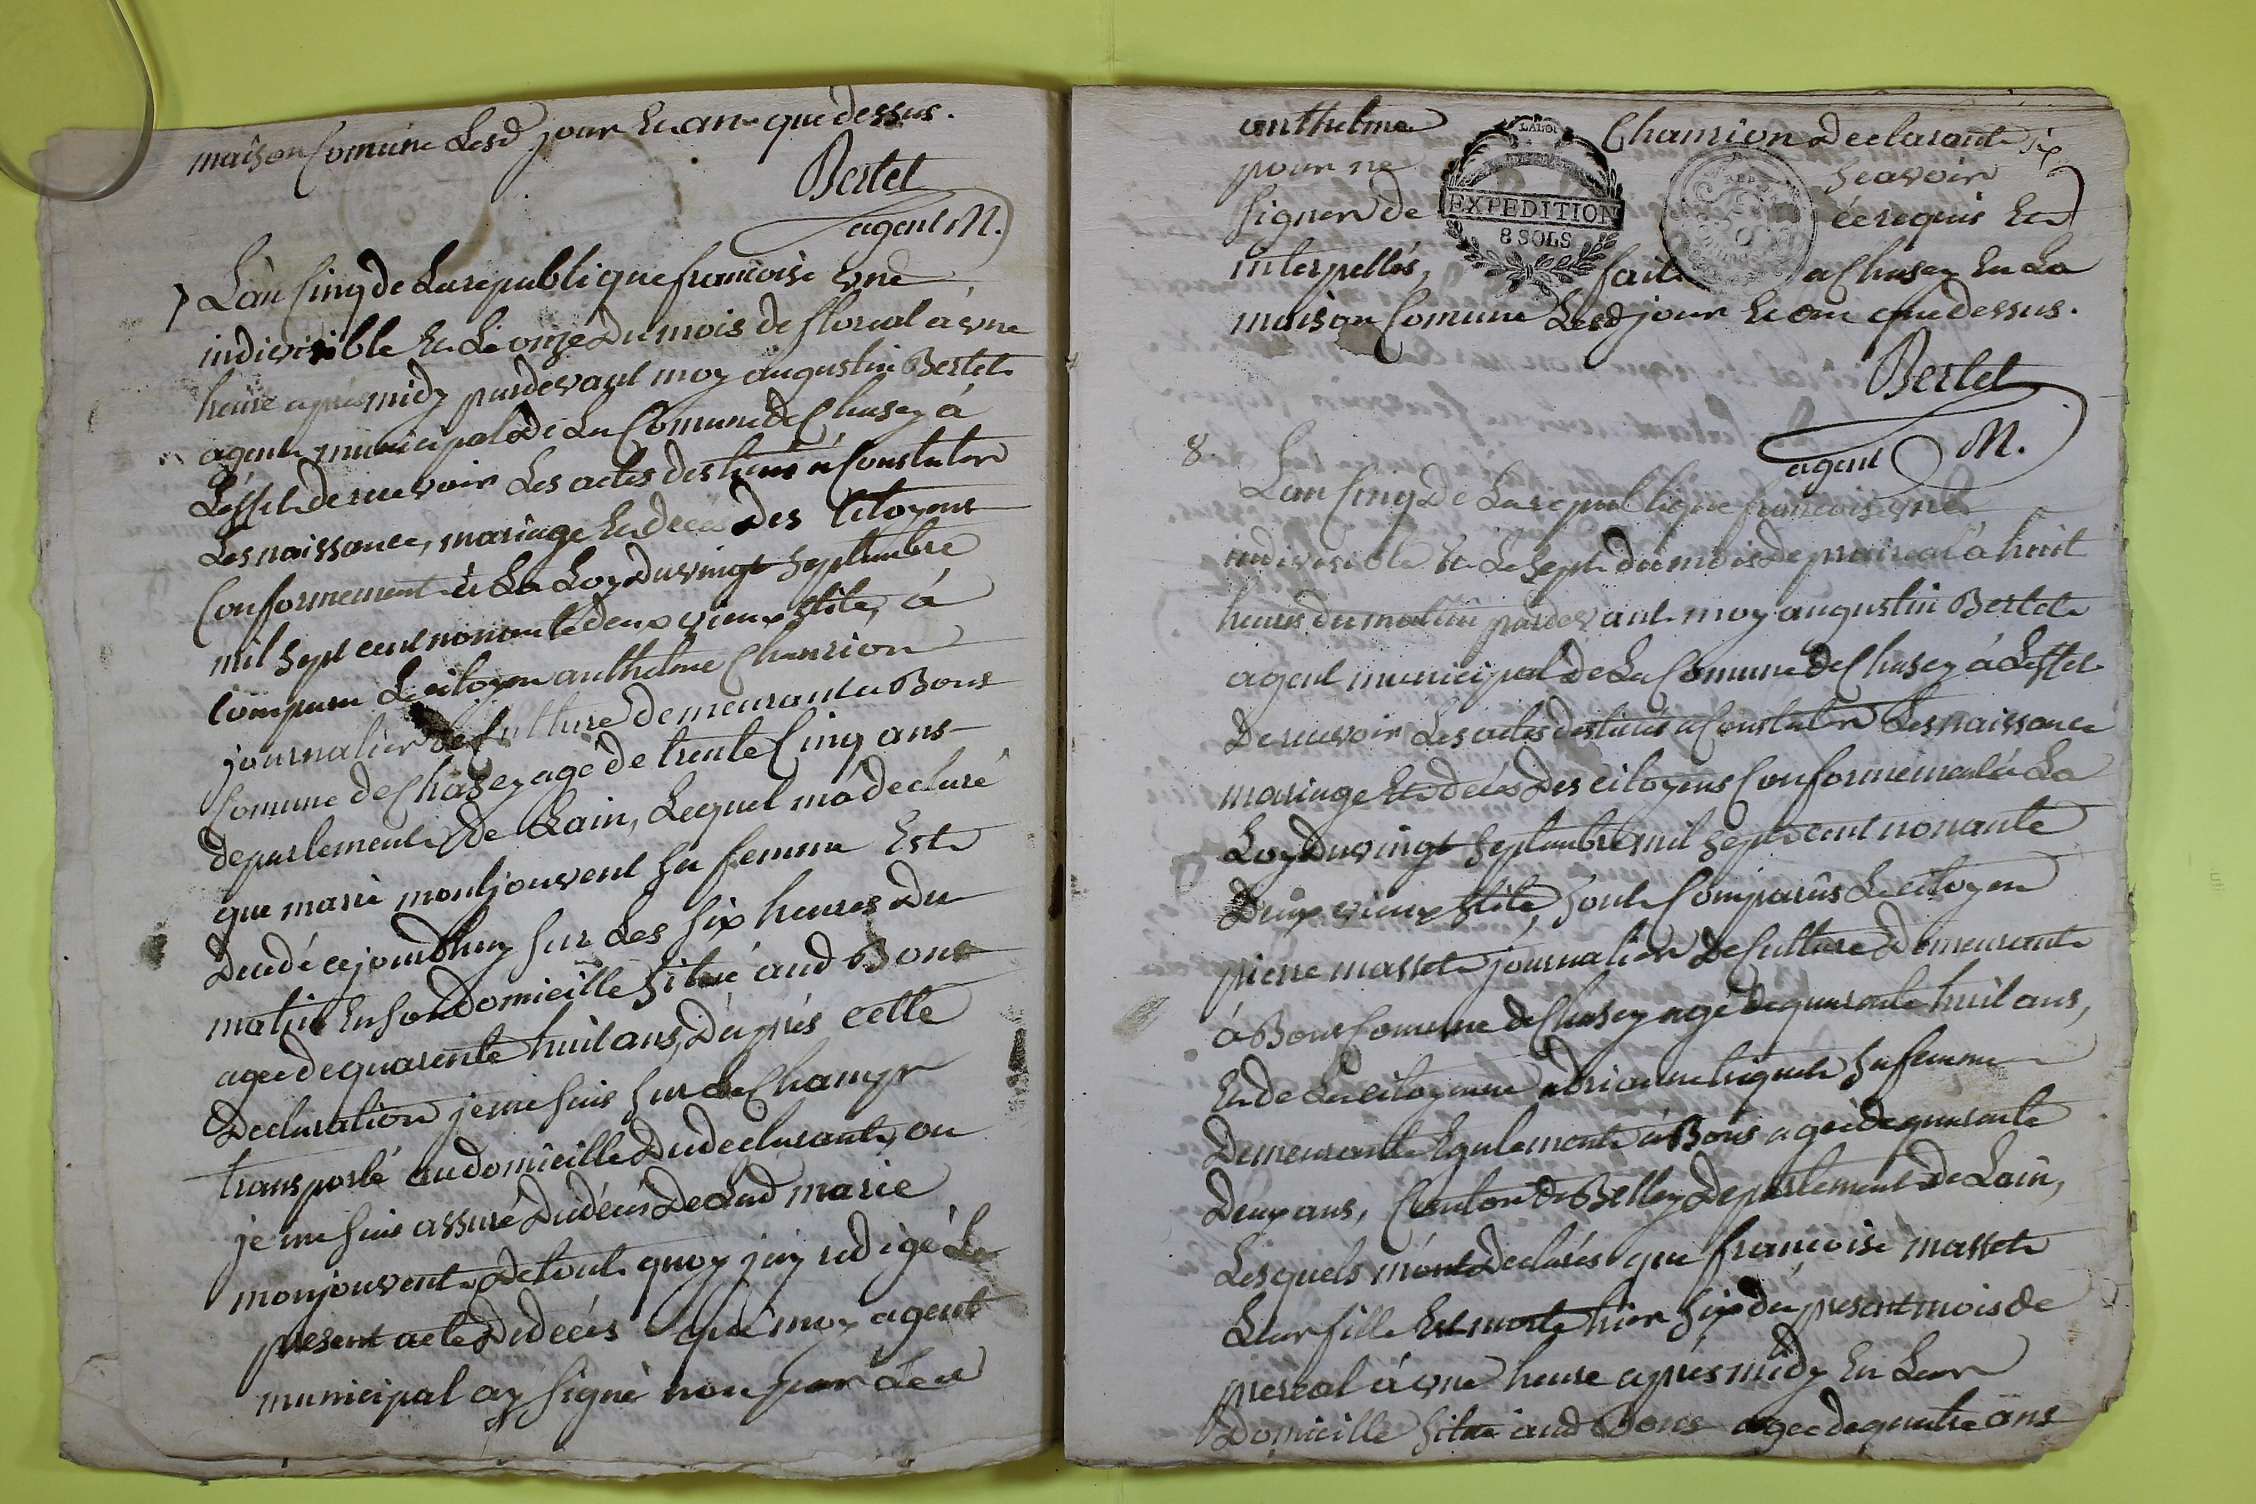 maison Comune Lesd jour Et an que dessus.
Bertet
agent M.
7 L'an Cinq de La republique francoise une
indivisible Et Le onze Du mois de floreal à une
heure après midy pardevant moy augustin Bertet
agent municipal De La Comune De Chasey à
L'effet de recevoir Les actes destinés à Constater
Les naissance, mariage Et deces Des Citoyens
Conformement à La Loy Du vingt Septembre
mil Sept cent nonante deux vieux Stile, à
Comparu Le citoyen anthelme Chanrion
journalier de Culture demeurant à Bons
Comune de Chasey agé de trente Cinq ans
departement De Lain, Lequel m'a declaré
que marie montjouvent Sa femme Est
Decedé cejourdhuy Sur Les Six heures Du
matin En Son domicille Situé aud Bons
agée de quarente huit ans, D'après cette
Declaration je me Suis Sur Le Champ
transporté au domicille Du declarant, ou
je me Suis assuré Du décés De Lad marie
monjouvent De tout quoy j'ay redigé Le
present acte De décés que moy agent
municipal ay Signé non par Led
anthelme Chanrion Declarant
pour ne Scavoir
Signer de ce requis Et
interpellés, fait a Chasey En La
maison Comune Lesd jour Et an que dessus.
Bertet
agent M.
8.
L'an Cinq De La republique francoise une
indivisible Et Le Sept du mois de prairéal à huit
heures du matin pardevant moy augustin Bertet
agent municipal De La Comune De Chasey à L'effet
De recevoir Les actes destinés a Constater Les naissance
mariage Et decés Des citoyens Conformement à La
Loy Du vingt Septembre mil Sept cent nonante
Deux vieux Stile, Sont Comparûs Le citoyen
pierre masset journalier De Culture Demeurant
à Bons Comune de Chasey agé de quarente huit ans,
Et de La citoyenne adrianne triquet Sa femme
Demeurante Egalement à Bons agée de quarante
Deux ans, Canton De Belley Departement De Lain,
Lesquels m'ont Declarés que françoise masset
Leur fille Est morte hier Six du present mois de
preréal à une heure après midy En Leur
Domicille Situé aud Bons agée de quatre ans
EXPEDITION
8 SOLS